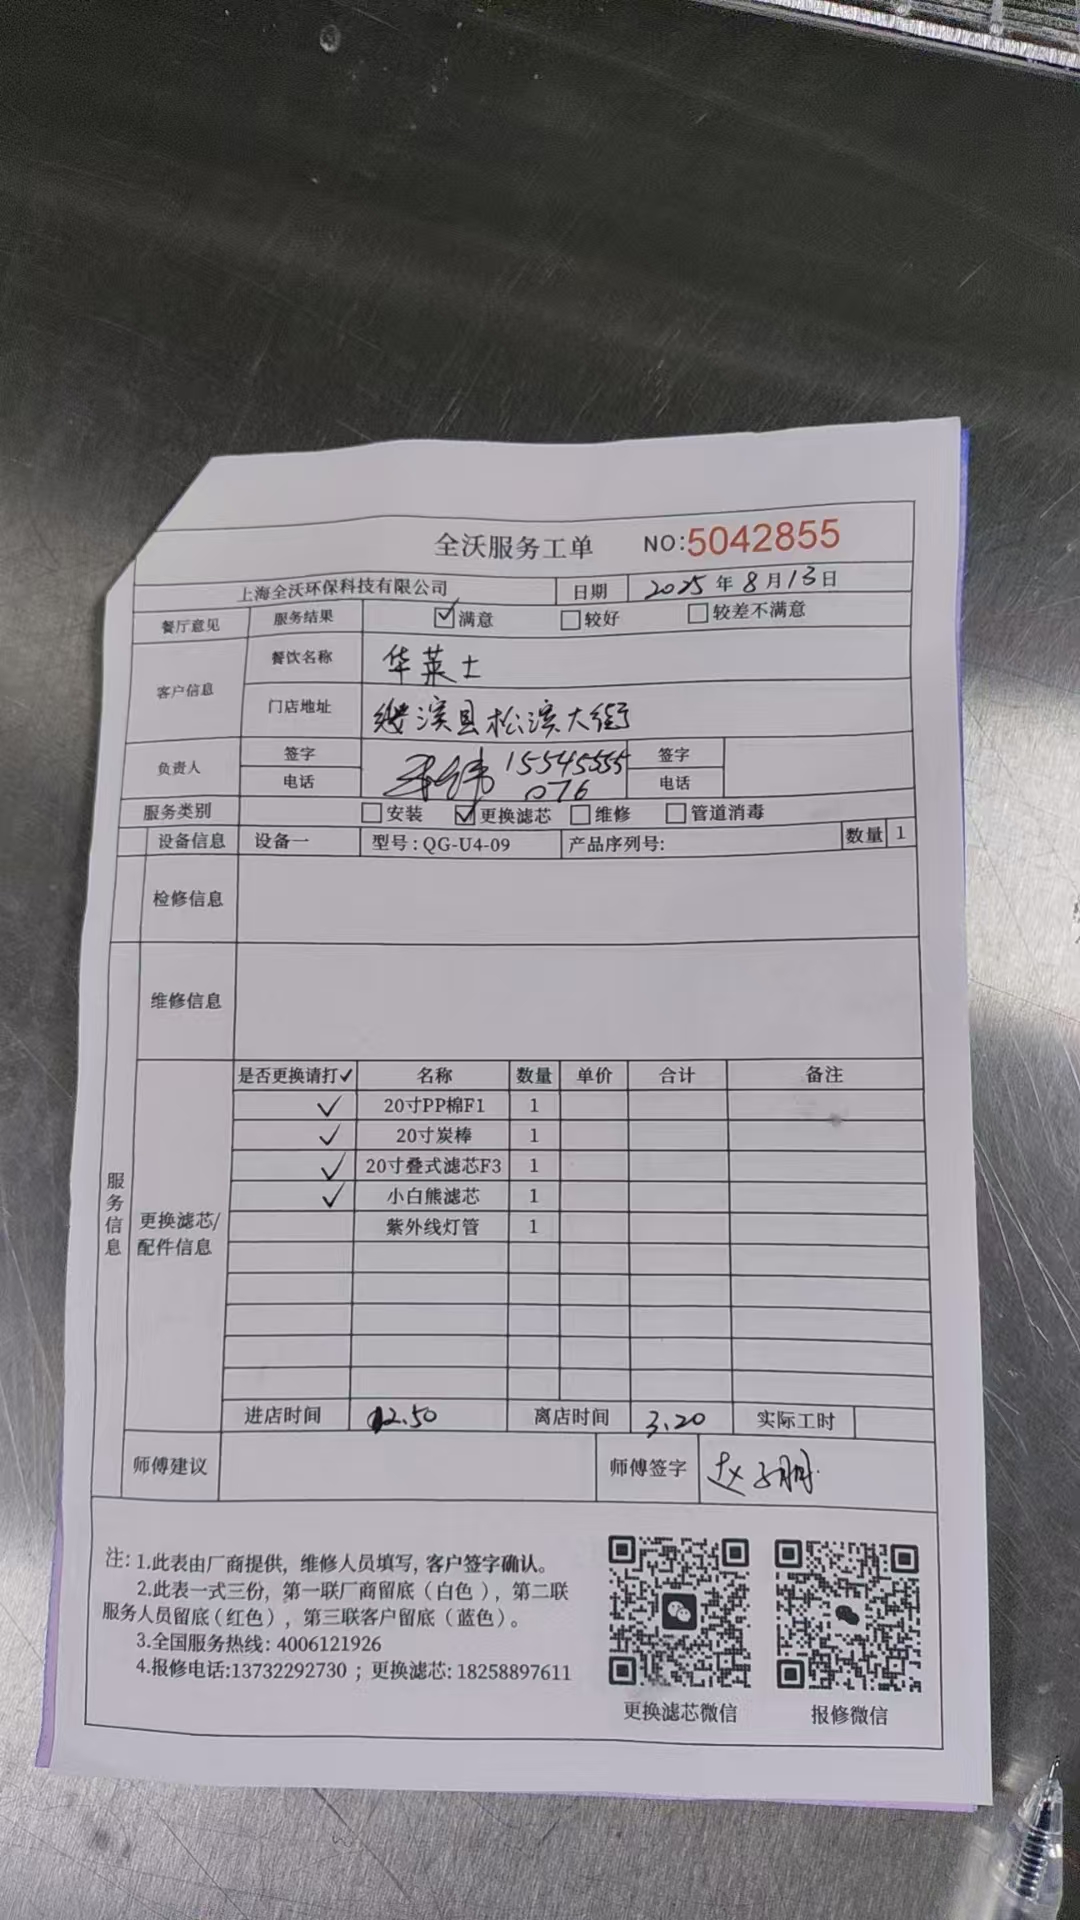 全沃服务工单 NO:5042855
上海全沃环保科技有限公司 日期 2025年8月13日
餐厅意见 服务结果 ☑满意 □较好 □较差不满意
客户信息 餐饮名称 华莱士
门店地址 绥滨县松滨大街
负责人 签字 15545555 签字
电话 076 电话
服务类别 □安装 ☑更换滤芯 □维修 □管道消毒
设备信息 设备一 型号:QG-U4-09 产品序列号: 数量 1
检修信息
维修信息
服务信息
更换滤芯/
配件信息
是否更换请打✓ 名称 数量 单价 合计 备注
✓ 20寸PP棉F1 1
✓ 20寸炭棒 1
✓ 20寸叠式滤芯F3 1
✓ 小白熊滤芯 1
紫外线灯管 1
进店时间 12.50 离店时间 3.20 实际工时
师傅建议 师傅签字
注: 1.此表由厂商提供, 维修人员填写, 客户签字确认。
2.此表一式三份, 第一联厂商留底(白色), 第二联
服务人员留底(红色), 第三联客户留底(蓝色)。
3.全国服务热线: 4006121926
4.报修电话:13732292730 ; 更换滤芯: 18258897611
更换滤芯微信 报修微信